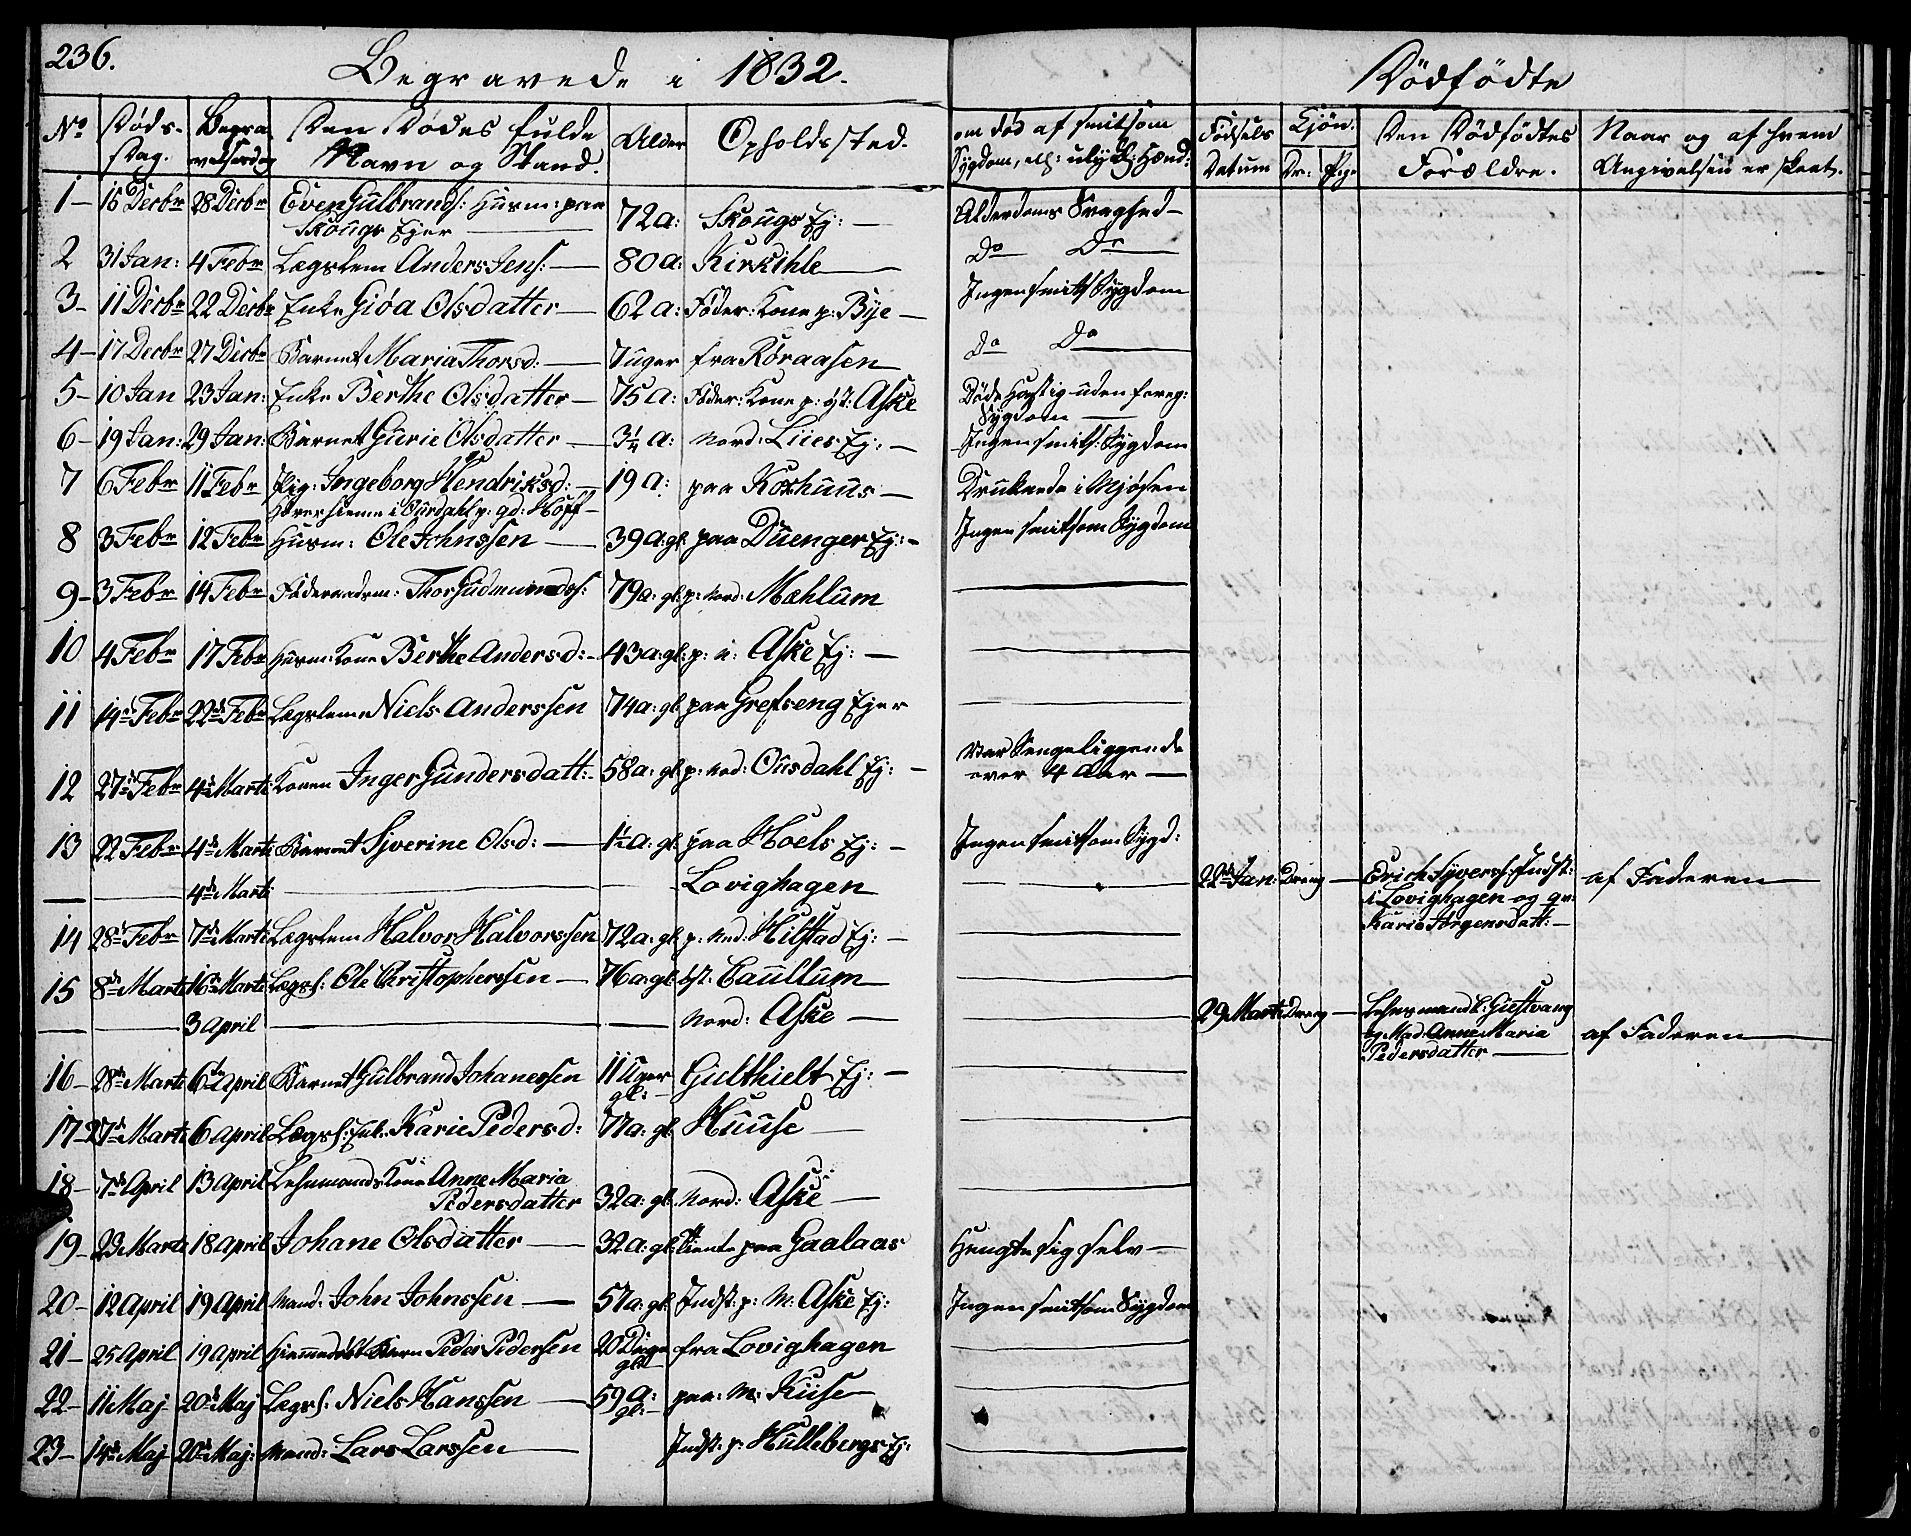 236.
Begravede i 1832.
Dödfödte
No Døds-Dag. Begravelsesdag Den Dødes fulde Navn og Stand. Alder Opholdssted. om død af smitsom Sygdom, ell: ulykl: Hænd: Fødsels Datum Kjön. Dr: Pige Den Dödfödtes Forældre. Naar og af hvem Angivelsen er skeet.
1- 16 Decbr 28 Decbr Even Gulbrands: Husm: paa Skougs Ejer 72 a: Skougs Ej: Alderdoms Svaghed-
2 31 Jan: 4 Febr Lægslem Anders Jens: 80 a: Kirkihle Do Do
3- 11 Decbr 22 Decbr Enke Giöa Olsdatter 62 a: Föder: Kone p: Bye Ingen smits: Sygdom
4- 17 Decbr 27 Decbr Barnet Maria Thorsd: 7 uger fra Röraasen Do Do
5- 10 Jan 23 Jan: Enke Berthe Olsdatter 75 a: Föder: Kone p: öst: Aske Döde hastig uden foreg: Sygdom
6- 19 Jan: 29 Jan: Barnet Gurie Olsdatter 3¼ a: nord: Lies Ej: Ingen smits: Sygdom
7 6 Febr 11 Febr Pig: Ingeborg Hendriksd: 19 a: paa Korhuus Druknede i Mjösen
8 3 Febr 12 Febr Husm: Ole Johnssen 39 a: gl: paa Duenger Ej: Ingen smitsom Sygdom
9- 3 Febr 14 Febr Föderaadsm: Thor Gudmunds: 79 a: gl: p: nord: Mæhlum
10 4 Febr 17 Febr Husm: Kone Berthe Andersd: 43 a: gl: p: n: Aske Ej:
11 14de Febr 22de Febr Lægslem Niels Anderssen 74 a: gl: paa Grefseng Ejer
12 27de Febr 4de Marti Konen Inger Gundersdatt: 58 a: gl: p: ned: Ousdahl Ej: Var Sengeliggende over 4 Aar
13 22 Febr 4de Marti Barnet Syverine Olsd: 1½ a: gl: paa Hoels Ej: Ingen smitsom Sygd:
4de Marti Lovighagen 22de Jan: Dreng Erich Syvers: Indst: i Lovighagen og qv: Karie Jörgensdatt: af Faderen
14 28de Febr 7de Marti Lægslem Halvor Halvorssen 72 a: gl: p: ned: Hilstad Ej:
15 8de Marti 16de Marti Lægsl: Ole Christopherssen 76 a: gl: öst: Caullum
3 April nord: Aske 29 Marti Dreng Lehnsmand C: Giestvang og Mad: Anne Maria Pedersdatter af Faderen
16- 28de Marti 6te April Barnet Gulbrand Johanessen 11 Uger gl: Gulthielt Ej:
17- 27de Marti 6 April Lægsl: Enk: Karie Pedersd: 77 a: gl: Huuse
18- 7de April 13 April Lehnsmands Kone Anne Maria Pedersdatter 32 a: gl: nord: Aske
19- 23 Marti 18 April Johane Olsdatter 32 a: gl: tiente paa Gaalaas Hengte sig selv
20- 12 April 19 April Mand: John Johnssen 57 a: gl: Indst: p: N: Aske Ej: Ingen smitsom Sygdom
21- 25 April 19 April Hiemmedöbt Barn Peder Pedersen 20 Dage gl: fra Lovighagen
22- 11 Maj 20de Maj Lægsl: Niels Hanssen 59 a: gl: paa N: Kise
23- 14de Maj 20de Maj: Mand: Lars Larssen Indst: p: Hullebergs Ej: